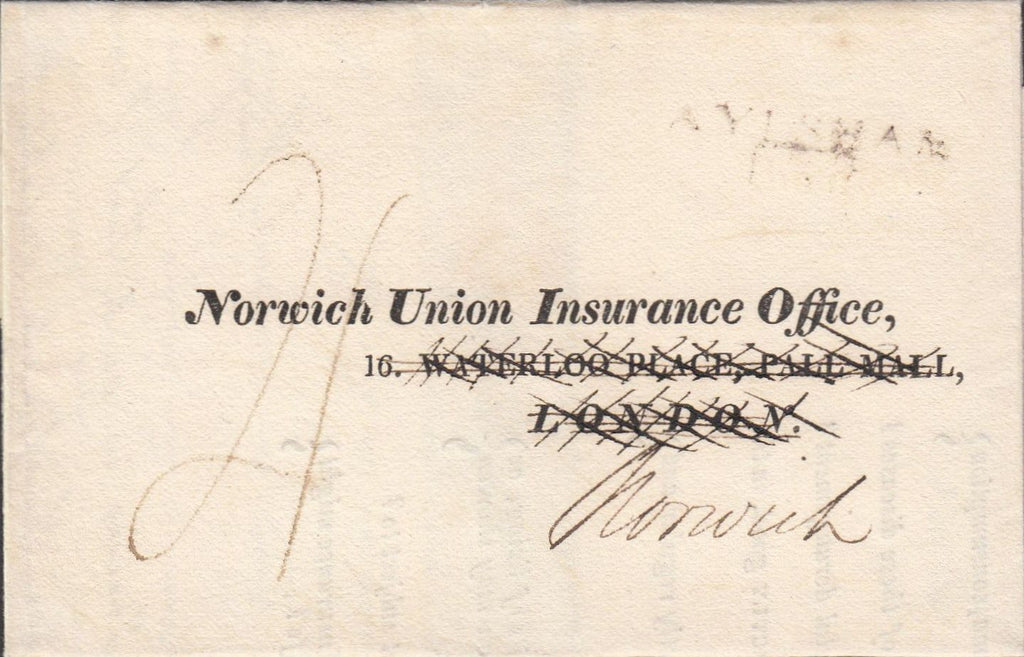 AYLSHAM
Norwich Union Insurance Office,
16. WATERLOO PLACE, PALL MALL,
LONDON.
Norwich